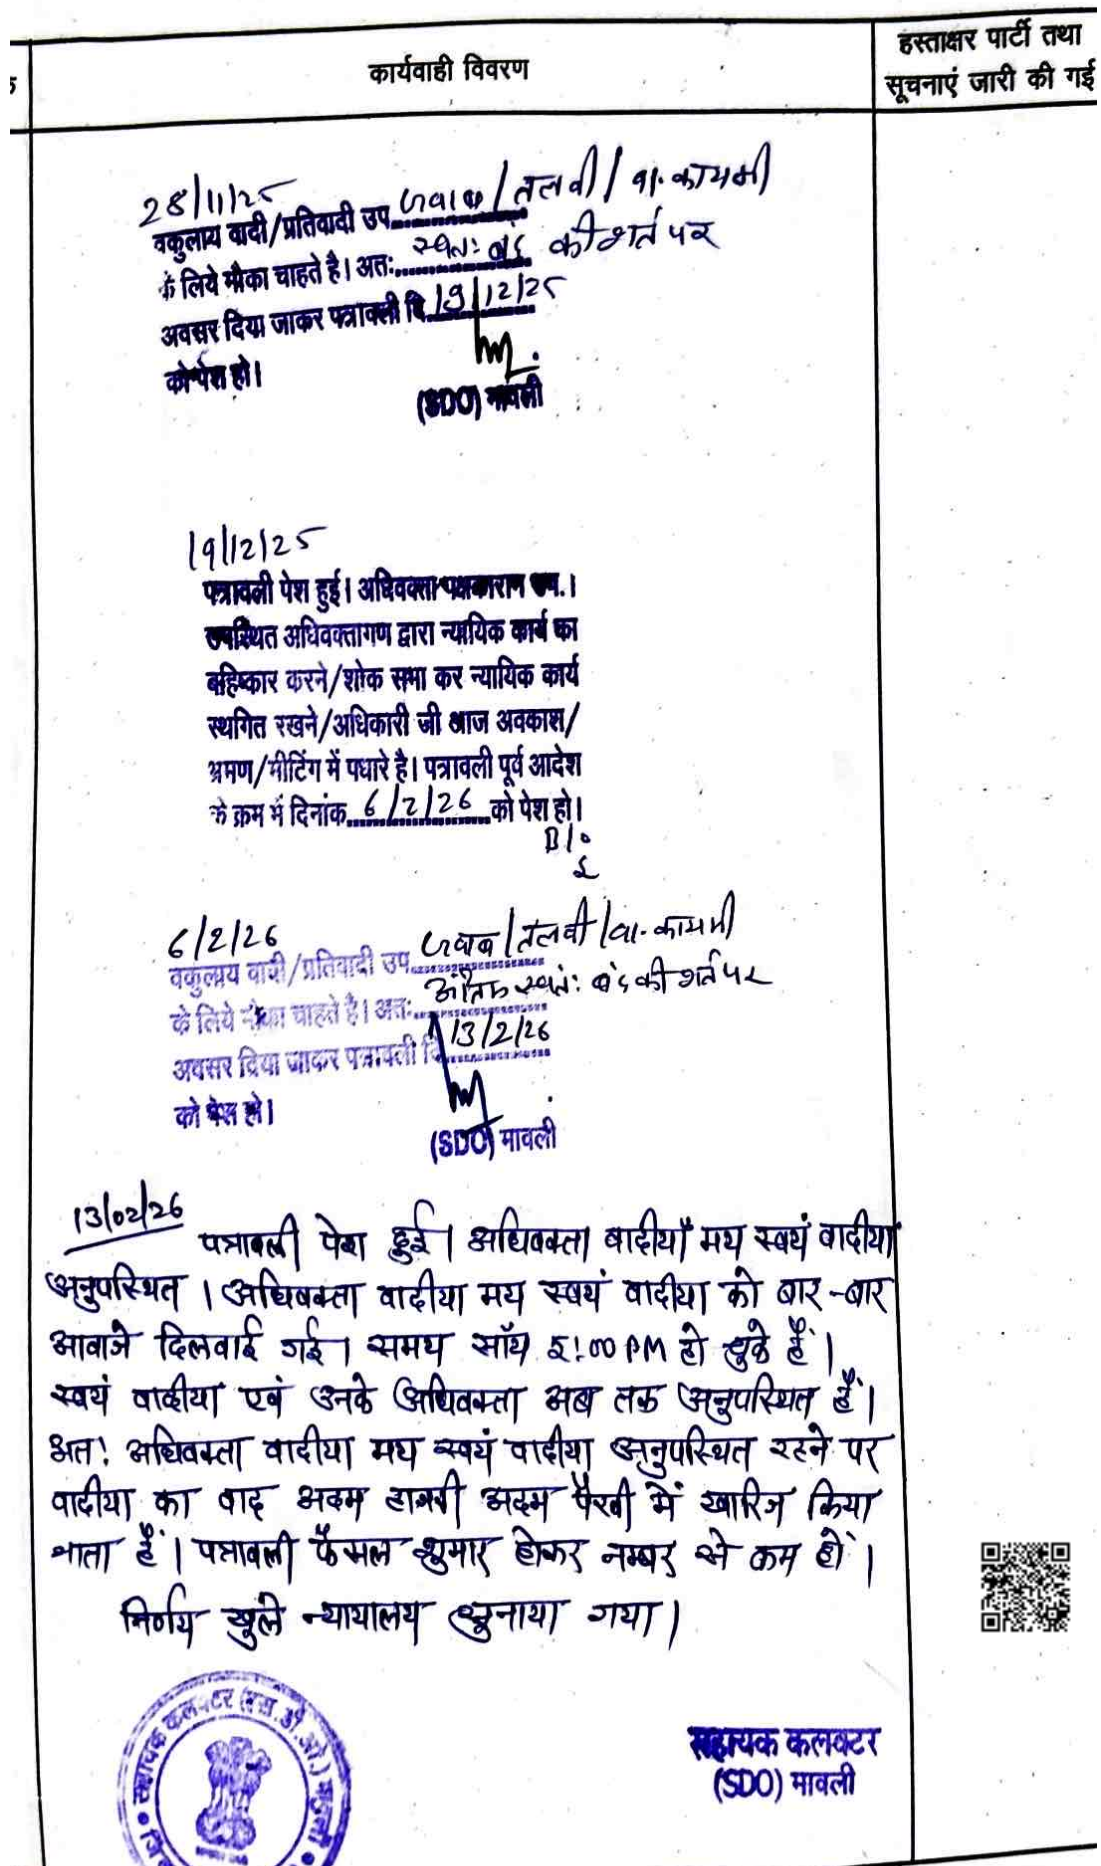 कार्यवाही विवरण
हस्ताक्षर पार्टी तथा
सूचनाएं जारी की गई
28/11/25
वकुलाय वादी/प्रतिवादी उप. जवाब/तलवी/वा. कायमी
के लिये मौका चाहते है। अतः स्वतः बंद की शर्त पर
अवसर दिया जाकर पत्रावली दि. 19/12/25
को पेश हो।
(SDO) मावली
19/12/25
पत्रावली पेश हुई। अधिवक्ता पक्षकारान उप.।
उपस्थित अधिवक्तागण द्वारा न्यायिक कार्य का
बहिष्कार करने/शोक सभा कर न्यायिक कार्य
स्थगित रखने/अधिकारी जी आज अवकाश/
भ्रमण/मीटिंग में पधारे है। पत्रावली पूर्व आदेश
के क्रम में दिनांक 6/2/26 को पेश हो।
6/2/26
वकुलाय वादी/प्रतिवादी उप. जवाब/तलवी/वा. कायमी
के लिये मौका चाहते है। अतः अंतिम स्वतः बंद की शर्त पर
अवसर दिया जाकर पत्रावली दि. 13/2/26
को पेश हो।
(SDO) मावली
13/02/26
पत्रावली पेश हुई। अधिवक्ता वादीया मय स्वयं वादीया
अनुपस्थित। अधिवक्ता वादीया मय स्वयं वादीया को बार-बार
आवाजे दिलवाई गई। समय सॉय 5:00 PM हो चुके हैं।
स्वयं वादीया एवं उनके अधिवक्ता अब तक अनुपस्थित हैं।
अतः अधिवक्ता वादीया मय स्वयं वादीया अनुपस्थित रहने पर
वादीया का वाद अदम हाजरी अदम पैरवी में खारिज किया
जाता हैं। पत्रावली फैसल शुमार होकर नम्बर से कम हों।
निर्णय खुले न्यायालय सुनाया गया।
सहायक कलक्टर (एस.डी.ओ.) मावली
सहायक कलक्टर
(SDO) मावली